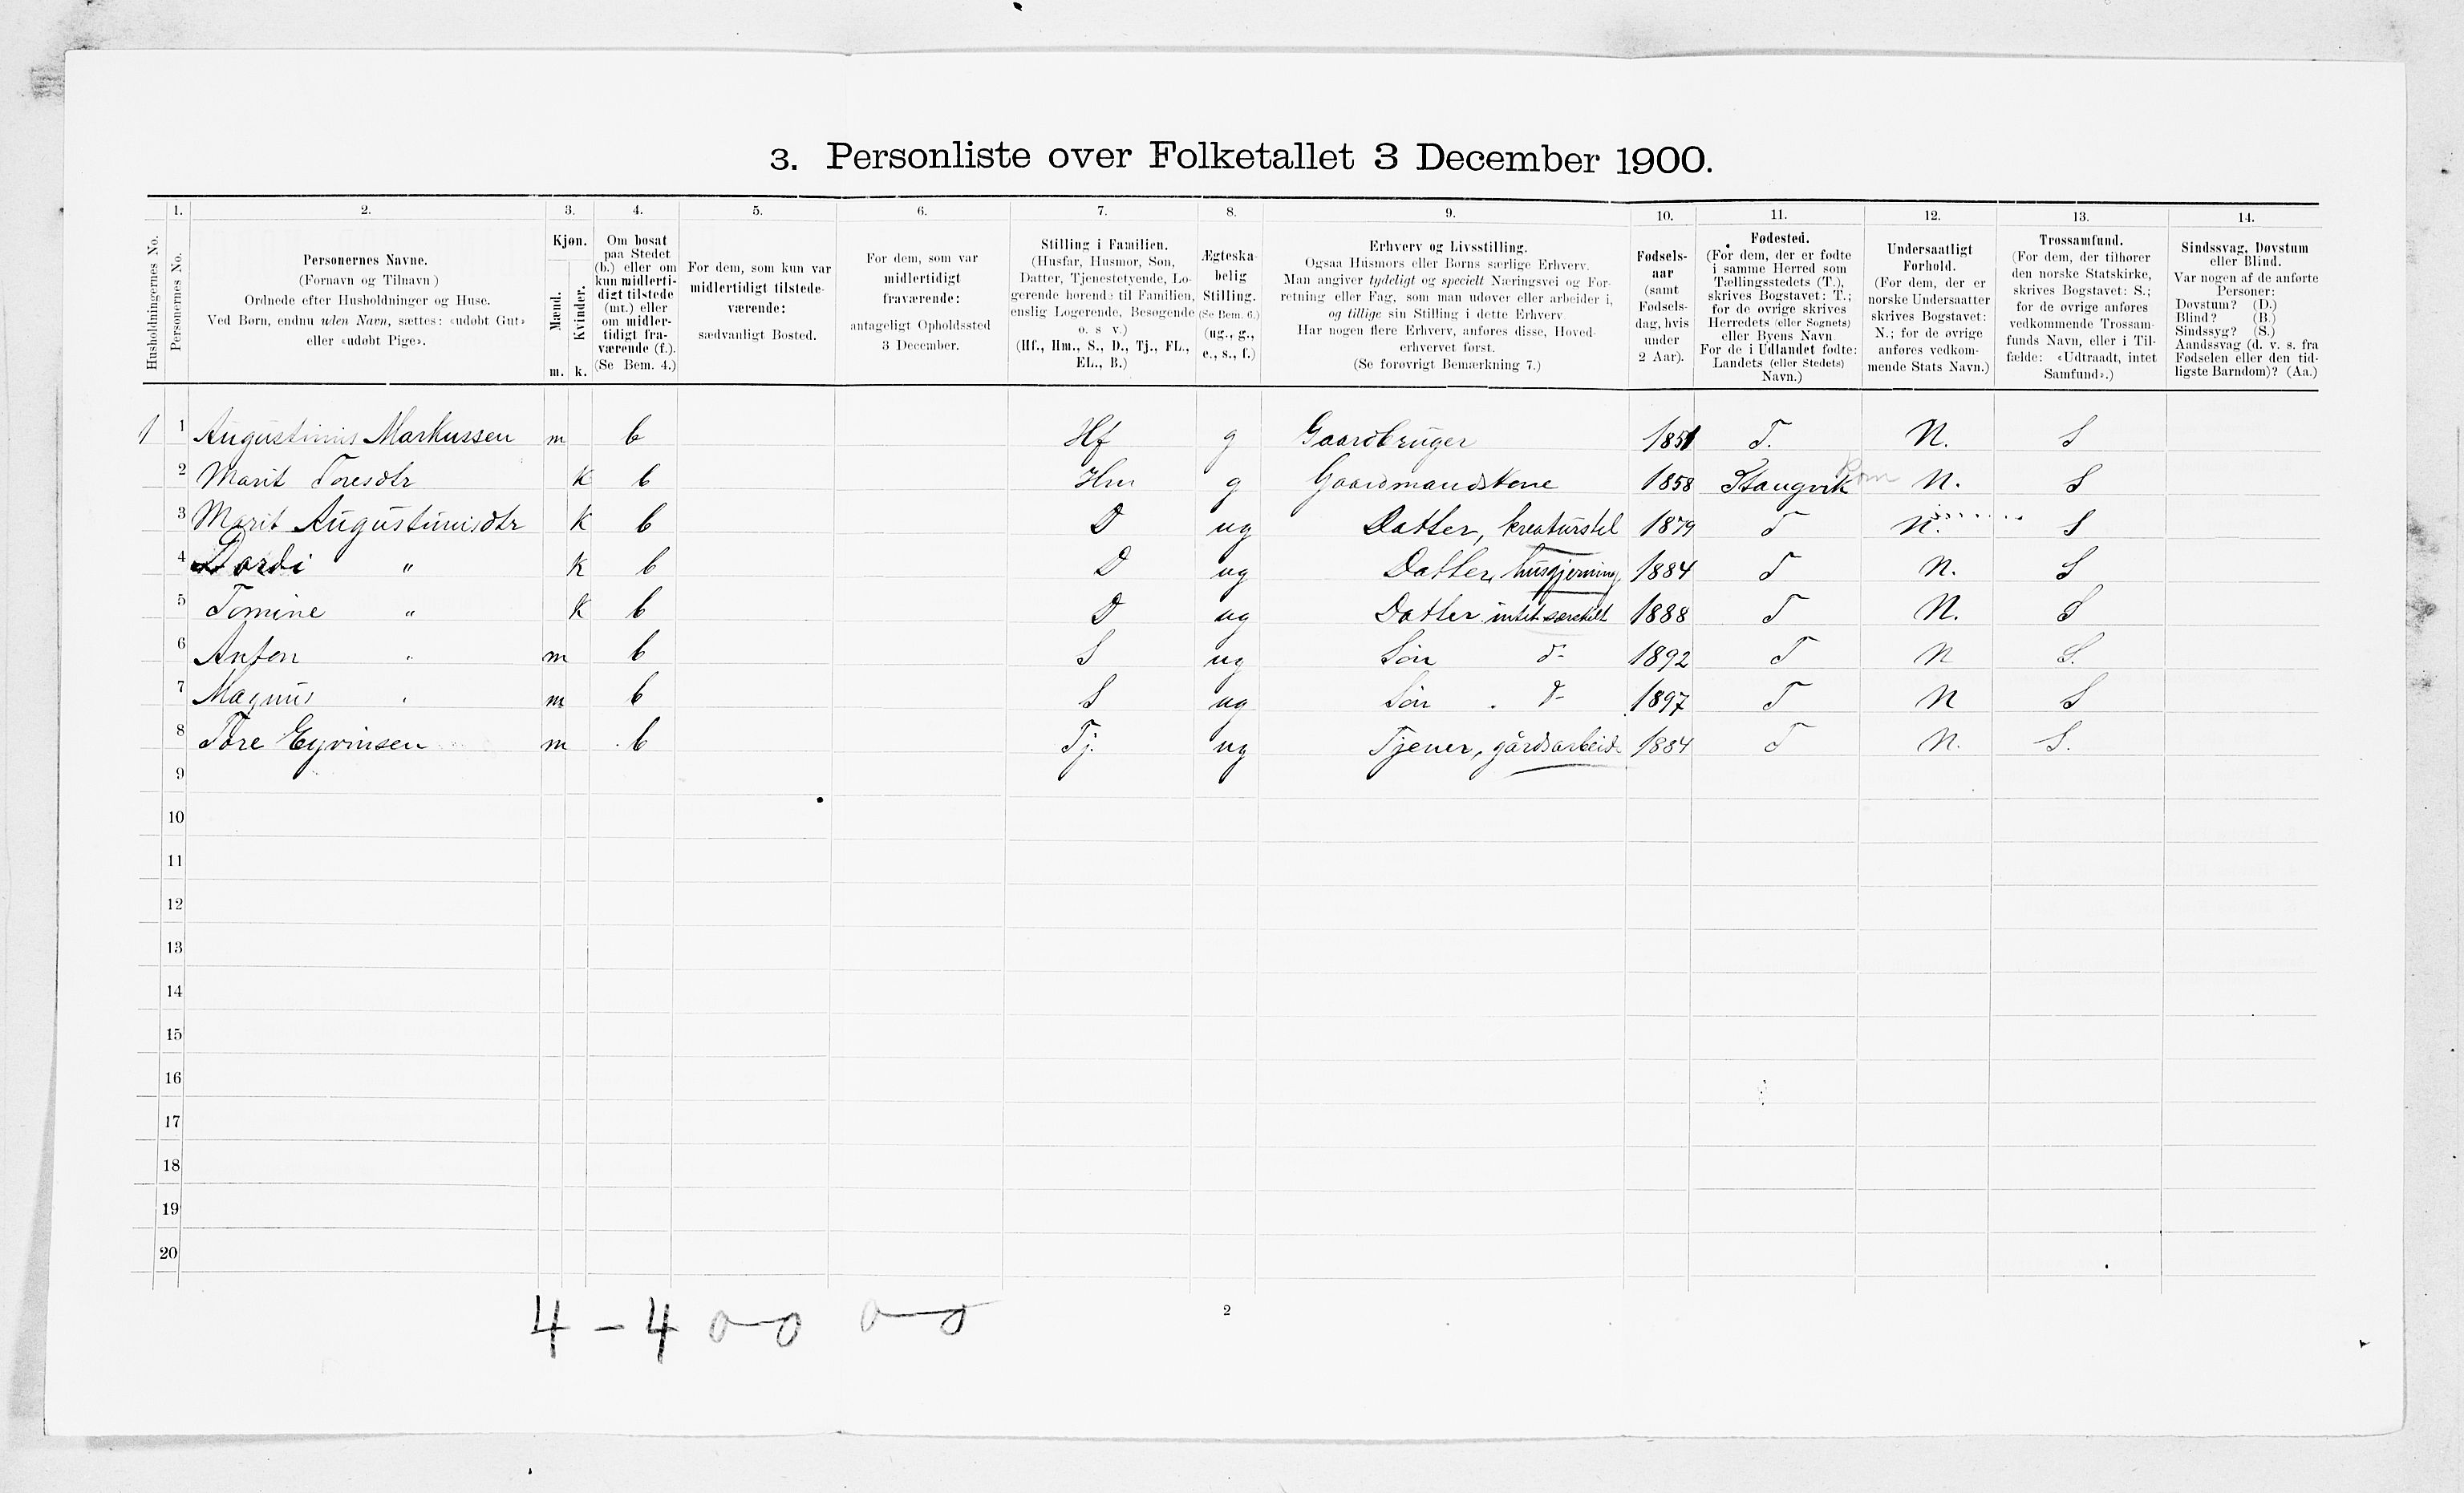 3. Personliste over Folketallet 3 December 1900.
1. 2. 3. 4. 5. 6. 7. 8. 9. 10. 11. 12. 13. 14.
Husholdningernes No.
Personernes No.
Personernes Navne.
(Fornavn og Tilnavn)
Ordnede efter Husholdninger og Huse.
Ved Børn, endnu uden Navn, sættes: «udøbt Gut»
eller «udøbt Pige».
Kjøn.
Mænd.
Kvinder.
m. k.
Om bosat
paa Stedet
(b.) eller om
kun midlerti-
digt tilstede
(mt.) eller
om midler-
tidigt fra-
værende (f.).
(Se Bem. 4.)
For dem, som kun var
midlertidigt tilstede-
værende:
sædvanligt Bosted.
For dem, som var
midlertidigt
fraværende:
antageligt Opholdssted
3 December.
Stilling i Familien.
(Husfar, Husmor, Søn,
Datter, Tjenestetyende, Lo-
gerende hørende til Familien,
enslig Logerende, Besøgende
o. s v.)
(Hf., Hm., S., D., Tj., FL.,
EL., B.)
Ægteska-
belig
Stilling.
(Se Bem. 6.)
(ug., g.,
e., s., f.)
Erhverv og Livsstilling.
Ogsaa Husmors eller Børns særlige Erhverv.
Man angiver tydeligt og specielt Næringsvei og For-
retning eller Fag, som man udøver eller arbeider i,
og tillige sin Stilling i dette Erhverv.
Har nogen flere Erhverv, anføres disse, Hoved-
erhvervet først.
(Se forøvrigt Bemærkning 7.)
Fødsels-
aar
(samt
Fødsels-
dag, hvis
under
2 Aar).
Fødested.
(For dem, der er fødte
i samme Herred som
Tællingsstedets (T.),
skrives Bogstavet: T.;
for de øvrige skrives
Herredets (eller Sognets)
eller Byens Navn
For de i Udlandet fødte:
Landets (eller Stedets)
Navn.)
Undersaatligt
Forhold.
(For dem, der er
norske Undersaatter
skrives Bogstavet:
N.; for de øvrige
anføres vedkom-
mende Stats Navn.)
Trossamfund.
(For dem, der tilhører
den norske Statskirke,
skrives Bogstavet: S.;
for de øvrige anføres
vedkommende Trossam-
funds Navn, eller i Til-
fælde: «Udtraadt, intet
Samfund».)
Sindssvag, Døvstum
eller Blind.
Var nogen af de anførte
Personer:
Døvstum? (D.)
Blind? (B.)
Sindssyg? (S.)
Aandssvag (d. v. s. fra
Fødselen eller den tid-
ligste Barndom)? (Aa.)
1 1 Augustinus Markussen m b Hf g Gaardbruger 1851 T. N. S
2 Marit Toresdtr k b Hm g Gaardmandskone 1858 Stangvik Rom N. S
3 Marit Augustinusdtr k b D ug Datter, kreaturstel 1879 T N. S
4 Dordi " k b D ug Datter, husgjerning. 1884 T N. S
5 Tomine " k b D ug Datter intet særskilt 1888 T N. S
6 Anton " m b S ug Søn d- 1892 T N S.
7 Magnus " m b S ug Søn d- 1897 T N S
8 Tore Eyvinsen m b Tj. ug Tjener, gårdsarbeide 1884 T N. S.
9
10
11
12
13
14
15
16
17
18
19
20
4 - 4 0-0 0-0
2